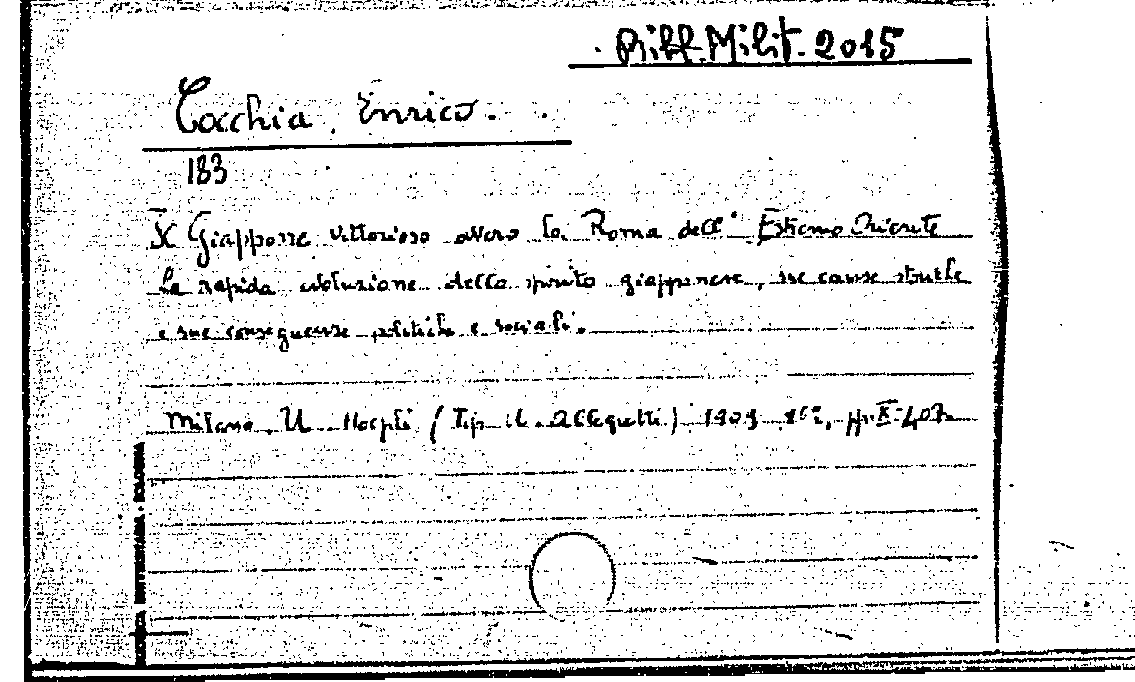 Bibl. Milit. 2015
Cocchia, Enrico.
183
Il Giappone vittorioso ovvero la Roma dell' Estremo Oriente
La rapida evoluzione dello spirito giapponese, sue cause storiche
e sue conseguenze politiche e sociali.
Milano. U. Hoepli (Tip. U. Allegretti) 16°, pp. X-407